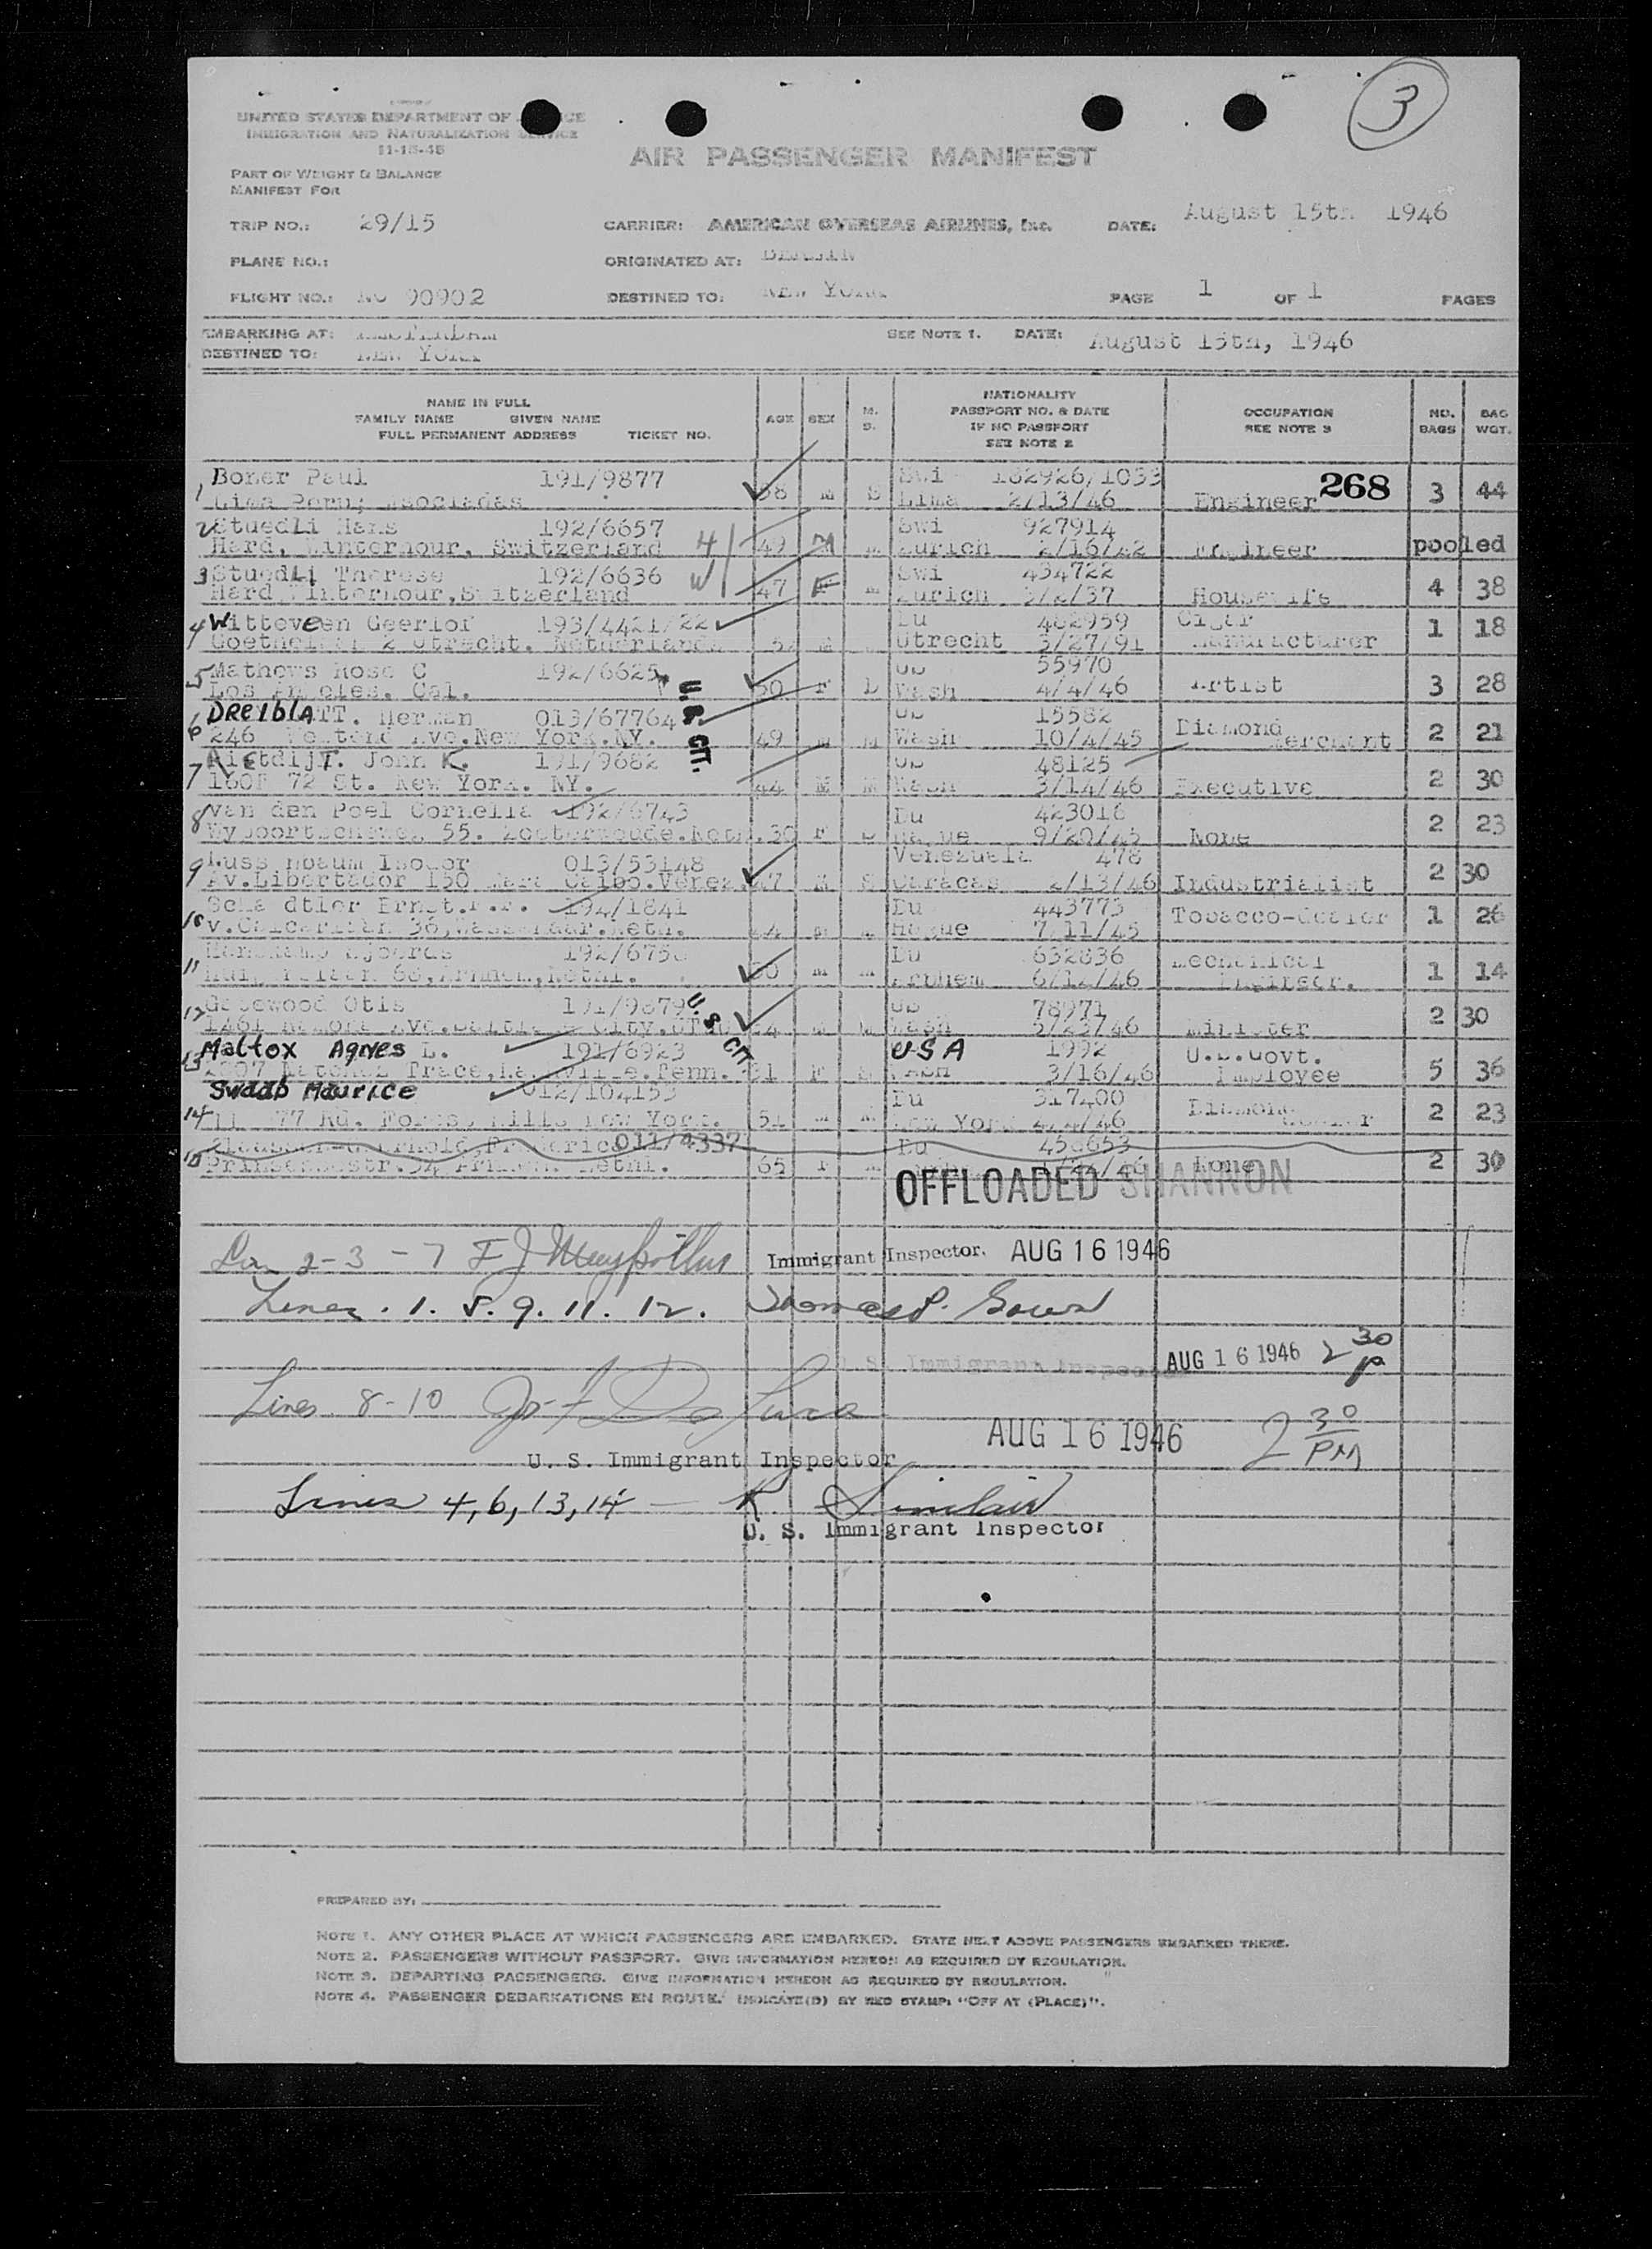 3
UNITED STATES DEPARTMENT OF
IMMIGRATION AND NATURALIZATION SERVICE
11-15-45
AIR PASSENGER MANIFEST
PART OF WEIGHT & BALANCE
MANIFEST FOR
TRIP NO.: 29/15 CARRIER: AMERICAN OVERSEAS AIRLINES, Inc. DATE: August 15th 1946
PLANE NO.: ORIGINATED AT:
FLIGHT NO.: NC 90902 DESTINED TO: NEW YORK PAGE 1 OF 1 PAGES
EMBARKING AT: AMSTERDAM SEE NOTE 1. DATE: August 15th, 1946
DESTINED TO: NEW YORK
NAME IN FULL
FAMILY NAME GIVEN NAME
FULL PERMANENT ADDRESS TICKET NO.
AGE SEX M. S.
NATIONALITY
PASSPORT NO. & DATE
IF NO PASSPORT
SEE NOTE 2
OCCUPATION
SEE NOTE 3
NO. BAGS
BAG WGT.
1 Boner Paul 191/9877 Swi 162926/1033 268
Lima Peru; 38 M S Lima 2/13/46 Engineer 3 44
2 Stuedli Hans 192/6657 Swi 927914
Hard, Winterhour, Switzerland 49 M M Zurich 2/16/42 Engineer pooled
3 Stuedli Therese 192/6636 Swi 434722
Hard, Winterhour, Switzerland 47 F M Zurich 3/2/37 Housewife 4 38
4 Witteveen Geerlof 193/4421/22 Du 462959 Cigar
2 Utrecht. Netherlands M Utrecht 3/27/91 Manufacturer 1 18
5 Mathews Rose C 192/6625 US 55970
Los Angeles. Cal. 50 F D Wash 4/4/46 Artist 3 28
U.S. CIT.
6 DREIBLATT. Herman 013/67764 US 15582 Diamond
246 Westend Ave. New York. NY. 49 M M Wash 10/4/45 Merchant 2 21
7 Rietdijt. John K. 191/9682 US 48125
160E 72 St. New York. NY. 44 M M Wash 3/14/46 Executive 2 30
8 Van den Poel Cornelia 192/6743 Du 423016
55. Zoeterwoude. Neth. 30 F Hague 9/20/45 None 2 23
9 Nussenbaum Isodor 013/53148 Venezuela 478
Av. Libertador 150 Mara Caibo. Venez. 47 M S Caracas 2/13/46 Industrialist 2 30
10 Ernst. 194/1841 Du 443773 Tobacco-dealer
36, Wassenaar. Neth. M Hague 7/11/45 1 26
11 192/675 Du 632836 Mechanical
68, Arnhem, Nethl. 30 M M Arnhem 6/12/46 Engineer. 1 14
12 Gatewood Otis 191/9879 US 78971
1461 Ave. City. M M Wash 5/23/46 Minister 2 30
U.S. CIT
13 Maltox Agnes L. 191/6923 USA 1992 U.S. Govt.
Natchez Trace, Nashville. Tenn. 31 F Wash 3/16/46 Employee 5 36
Swaab Maurice 012/104153 Du 317400 Diamond
14 77 Rd. Forest Hills New York. 51 M M New York 4/4/46 2 23
Arnold, Frederic 011/4337 Du 458653
Arnhem. Nethl. 65 None 2 30
OFFLOADED SHANNON
2-3-7 Immigrant Inspector. AUG 16 1946
Lines . 1. 5. 9. 11. 12.
U.S. Immigrant Inspector AUG 16 1946 2 30 p
Lines 8-10
AUG 16 1946 2 30 PM
U. S. Immigrant Inspector
Lines 4, 6, 13, 14 — R Sinclair
U. S. Immigrant Inspector
PREPARED BY:
NOTE 1. ANY OTHER PLACE AT WHICH PASSENGERS ARE EMBARKED. STATE NEXT ABOVE PASSENGERS EMBARKED THERE.
NOTE 2. PASSENGERS WITHOUT PASSPORT. GIVE INFORMATION HEREON AS REQUIRED BY REGULATION.
NOTE 3. DEPARTING PASSENGERS. GIVE INFORMATION HEREON AS REQUIRED BY REGULATION.
NOTE 4. PASSENGER DEBARKATIONS EN ROUTE. INDICATE(D) BY RED STAMP: "OFF AT (PLACE)".